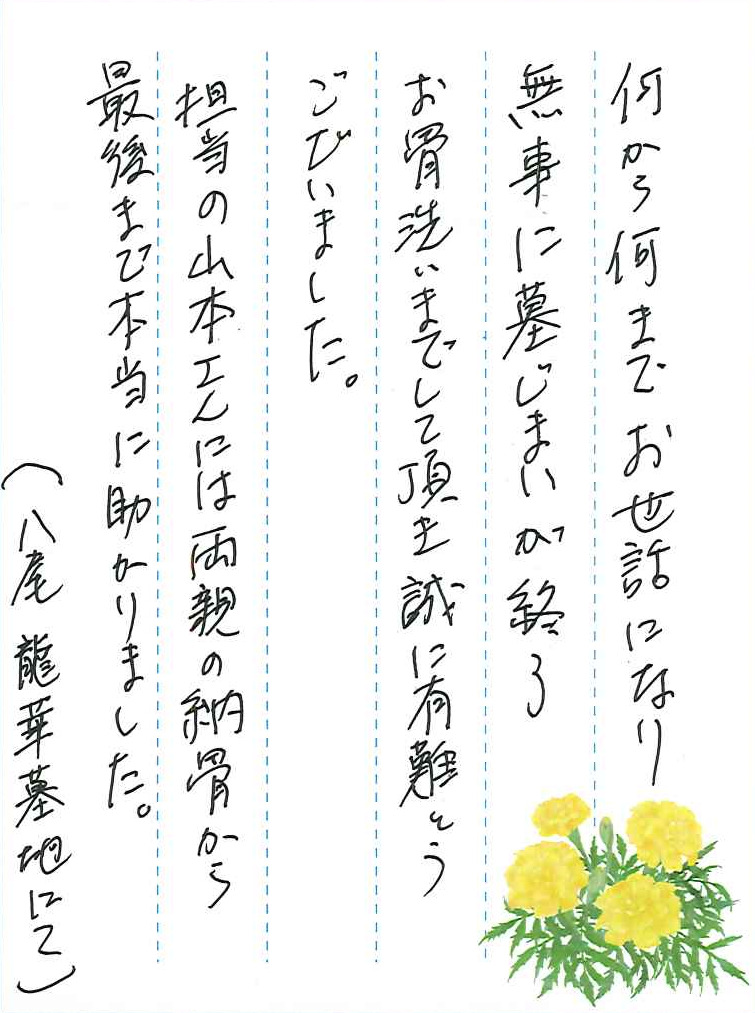 何から何までお世話になり
無事に墓じまいが終り
お骨洗いまでして頂き誠に有難とう
ございました。
担当の山本さんには両親の納骨から
最後まで本当に助かりました。
(八尾 龍華墓地にて)